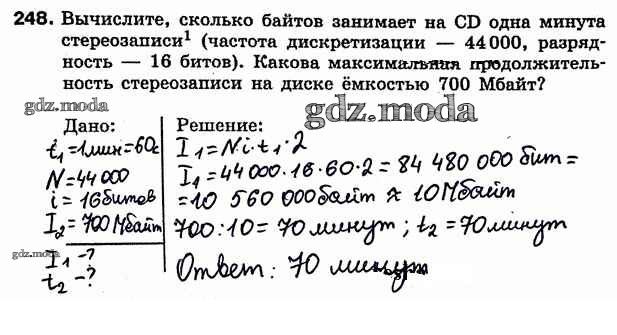 248. Вычислите, сколько байтов занимает на CD одна минута
стереозаписи¹ (частота дискретизации — 44 000, разряд-
ность — 16 битов). Какова максимальная продолжитель-
ность стереозаписи на диске ёмкостью 700 Мбайт?
gdz.moda
gdz.moda
Дано:
t₁=1мин=60с
N=44 000
i=16битов
I₂=700 Мбайт
gdz.moda
I₁ -?
t₂ -?
Решение:
I₁=N·i·t₁·2
I₁=44 000·16·60·2=84 480 000 бит=
=10 560 000байт ≈ 10Мбайт
700:10=70 минут; t₂=70минут
Ответ: 70 минут